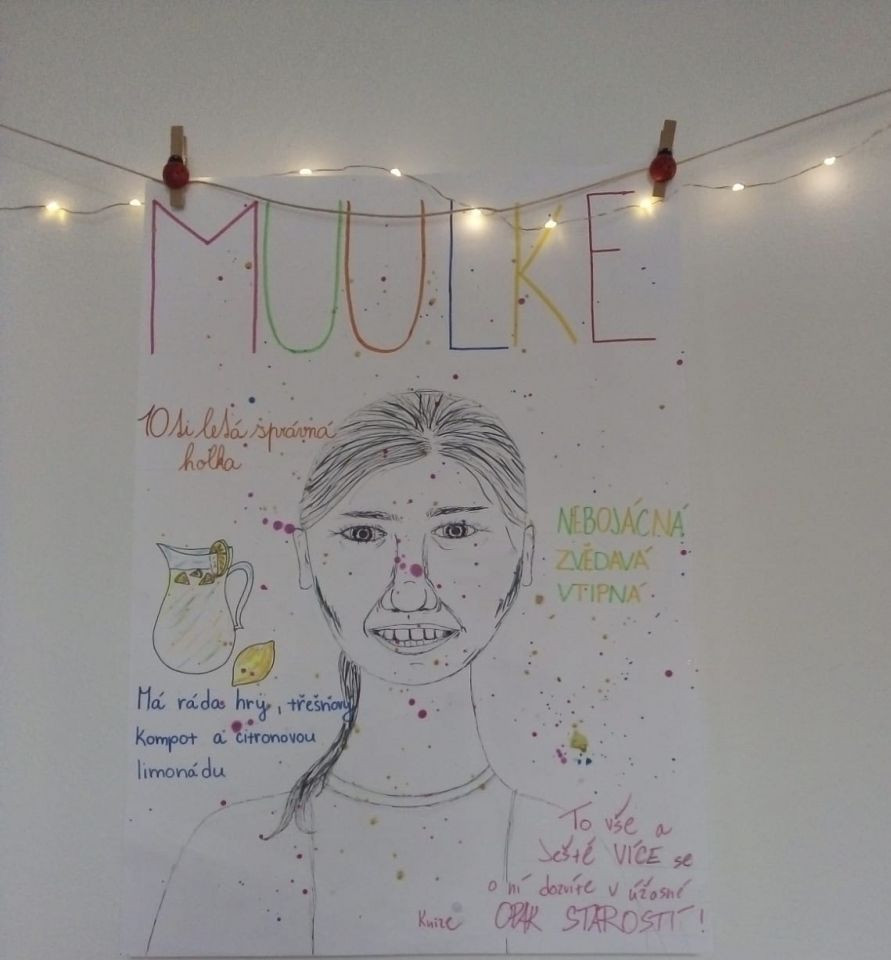 MUULKE
10ti letá správná
holka
NEBOJÁCNÁ
ZVĚDAVÁ
VTIPNÁ
Má ráda hry, třešňový
kompot a citronovou
limonádu
To vše a
Ještě VÍCE se
o ní dozvíte v úžasné
Knize OPAK STAROSTÍ!